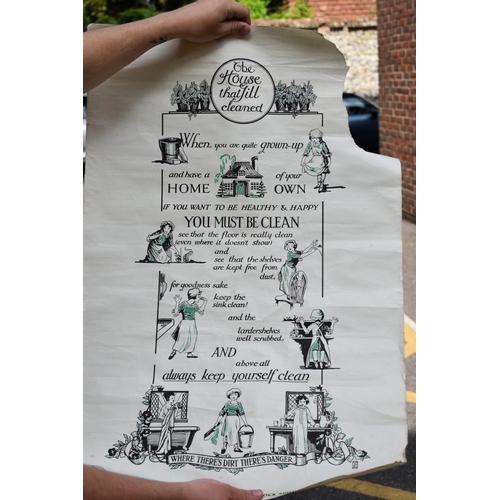 The
House
that Jill
cleaned
When, you are quite grown-up
and have a of your
HOME OWN
IF YOU WANT TO BE HEALTHY & HAPPY
YOU MUST BE CLEAN
see that the floor is really clean
(even where it doesn't show)
and
see that the shelves
are kept free from
dust,
for goodness sake
keep the
sink clean!
and the
larder shelves
well scrubbed.
AND
above all
always keep yourself clean
WHERE THERE'S DIRT THERE'S DANGER